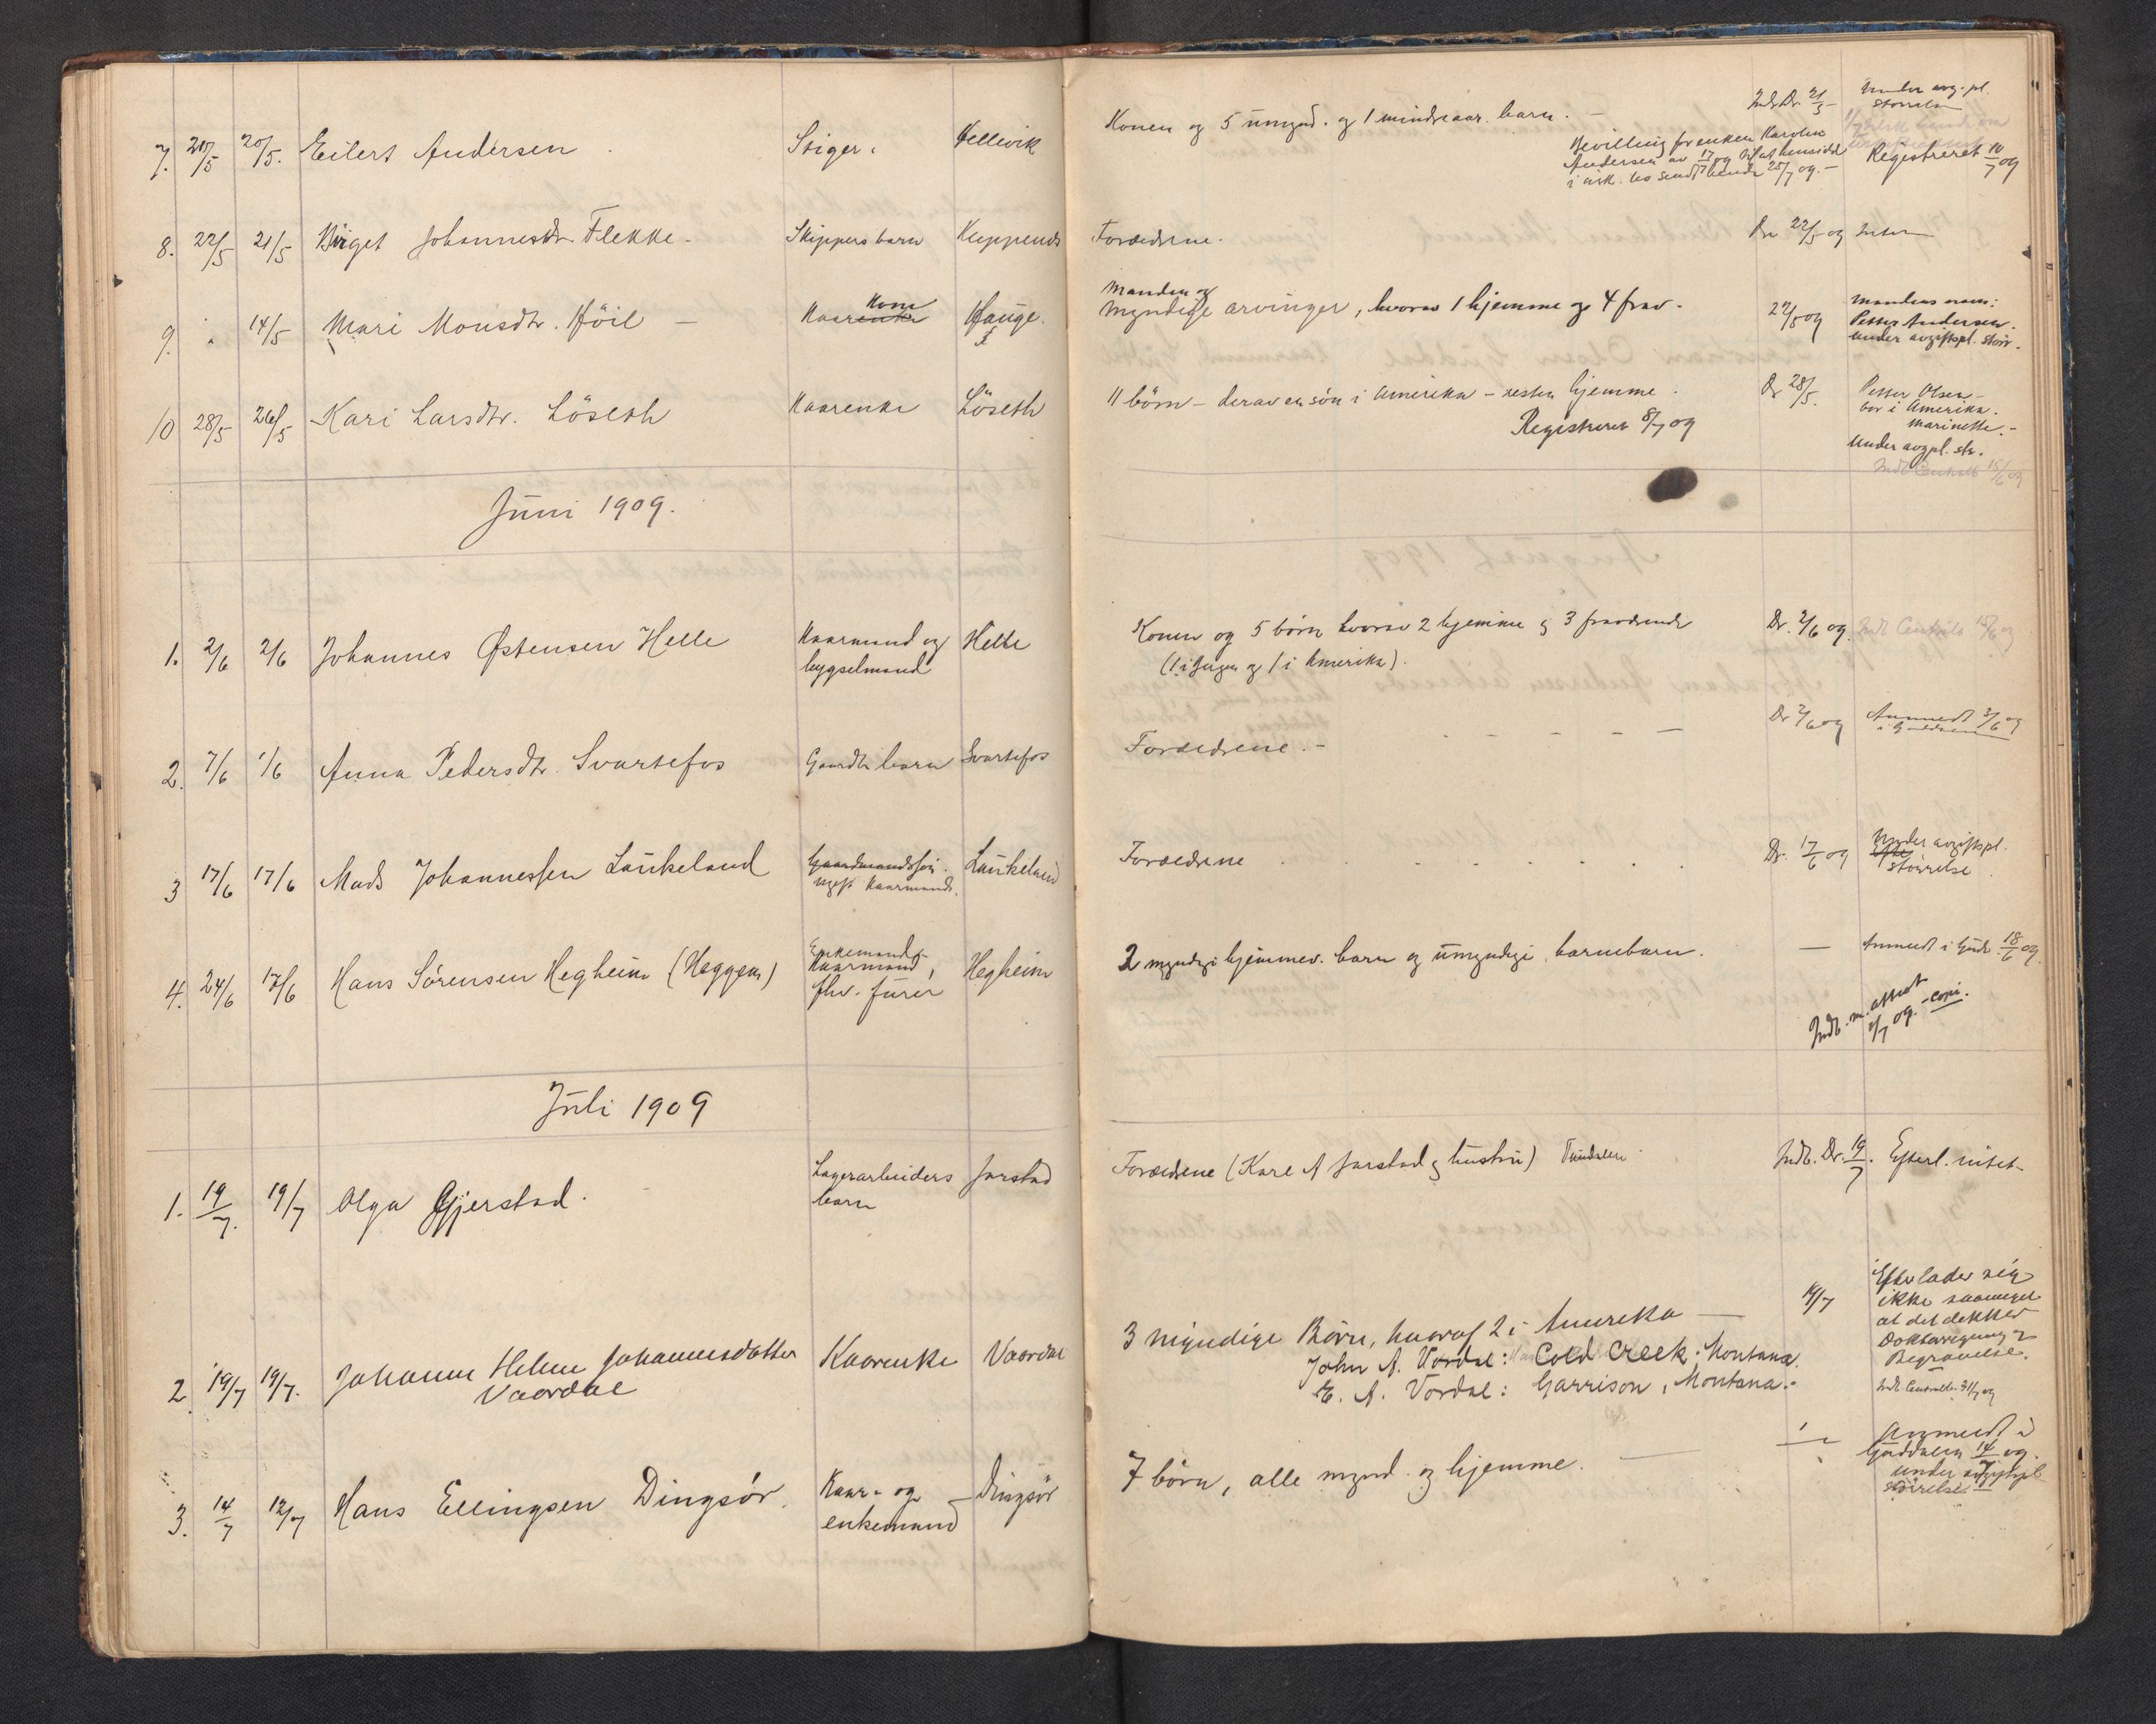 7. 20/5 20/5. Eilert Andersen Stiger. Hellevik Konen og 5 umynd. og 1 mindreaar. barn. — Indb. Dr. 21/5 Under avg. pl. størrelse
Bevilling for enken Karolen
Andersen av 17/7 09 til at hensidde
i usk
Registreret 10/7 09
8. 22/5 21/5 Birget Johannesdr. Flekke - Skippers barn Forældrene. Dr 22/5 09 Intet
9. " 14/5 Mari Monsdtr. Höil — Kaarenke Kone Hauge. Manden og
Myndige arvinger, hvorav 1 hjemme og 4 frav. 22/5 09 Mandens navn:
Petter Andersen.
Under avgiftspl. størr.
10 28/5 26/5 Kari Larsdtr. Löseth Kaarenke Löseth 11 börn – derav en sön i Amerika – resten hjemme. Dr 28/5. Petter Olsen -
bor i Amerika.
Marinette. -
Registreret 8/7 09
Under avgpl. str.
Indb. Centralb 15/6 09
Juni 1909.
1. 2/6 2/6 Johannes Østensen Helle Kaarmand og Helle Konen og 5 börn hvorav 2 hjemme og 3 fraværende Dr. 2/6 09. Indb Centralb 15/6 09
bygselmand (1 i Bergen og 1 i Amerika).
2. 7/6 1/6 Anna Pedersdtr. Svartefos Gaardbr barn Svartefos Forældrene. – Dr 7/6 09 Anmeldt 3/6 09
3 17/6 17/6 Mads Johannessen Laukeland Gaardmandssön. Laukeland Forældrene Dr. 17/6 09 Under avgiftspl.
ugift Kaarmand. størrelse
4. 24/6 17/6 Hans Sörensen Hegheim (Heggem) Enkemand Kaarmand, Hegheim 2 myndige hjemmev. barn og umyndige barnebarn. — Anmeldt i 18/6 09
fhv. furer
Indb. m. attest
1/7 09. - copi.
Juli 1909
1. 19/7. 19/7 Olga Gjerstad. Lagerarbeiders Jarstad Forældrene (Karl A Jarstad og hustru) Indb. Dr. 19/7. Efterl. intet -
barn
2 19/7 19/7. Johanne Helene Johannesdatter Kaarenke Vaardal 3 myndige Börn, hvoraf 2 i Amerika — 19/7 Efterlader sig
Vaardal ikke saameget
John A. Vordal: Cold Creek: Montana. at det dekker
E. A. Vordal: Garrison, Montana. - Doktorregning og
Begravelse.
Indb Centralb. 31/7 09
3. 14/7 12/7 Hans Ellingsen Dingsör. Kaar- og Dingsör 7 börn, alle mynd. og hjemme. — Anmeldt i
enkemand Guddalen 14/7 09.
under avgiftspl.
störrelse